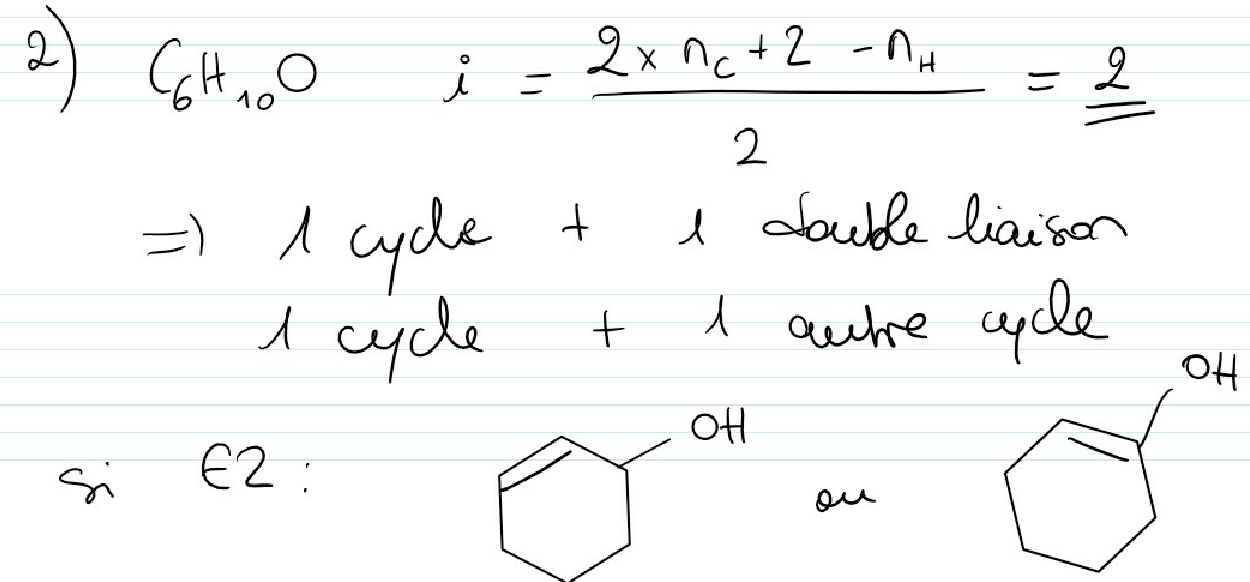 2) C₆H₁₀O i = (2 × n_C + 2 - n_H) / 2 = 2
=> 1 cycle + 1 double liaison
1 cycle + 1 autre cycle
si E2 : OH ou OH